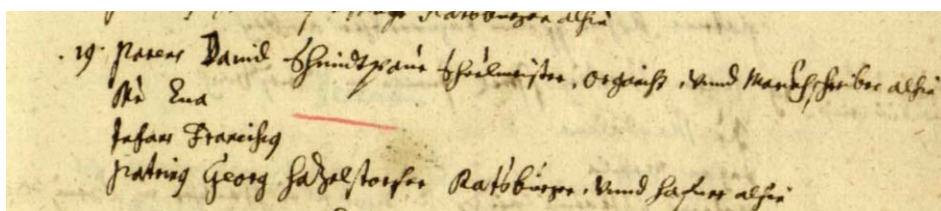 Ratsbürger alhie
. 19. Parens David Schmidtpaur Schulmeister, Organist, vnnd Marckhschreiber alhie
Mr Eua
Infans Franciscus
Patrinus Georg Hazelstorfer Ratsbürger, vnnd Hafner alhie